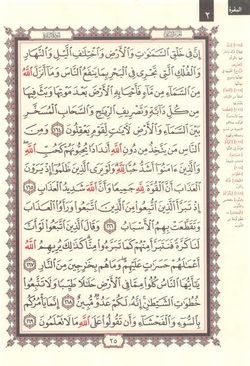 البقرة
٢
إِنَّ فِي خَلْقِ السَّمَٰوَٰتِ وَالْأَرْضِ وَاخْتِلَٰفِ الَّيْلِ وَالنَّهَارِ
وَالْفُلْكِ الَّتِي تَجْرِي فِي الْبَحْرِ بِمَا يَنفَعُ النَّاسَ وَمَا أَنزَلَ اللَّهُ
مِنَ السَّمَاءِ مِن مَّاءٍ فَأَحْيَا بِهِ الْأَرْضَ بَعْدَ مَوْتِهَا وَبَثَّ فِيهَا
مِن كُلِّ دَابَّةٍ وَتَصْرِيفِ الرِّيَٰحِ وَالسَّحَابِ الْمُسَخَّرِ
بَيْنَ السَّمَاءِ وَالْأَرْضِ لَءَايَٰتٍ لِّقَوْمٍ يَعْقِلُونَ ١٦٤ وَمِنَ
النَّاسِ مَن يَتَّخِذُ مِن دُونِ اللَّهِ أَندَادًا يُحِبُّونَهُمْ كَحُبِّ اللَّهِ
وَالَّذِينَ ءَامَنُوا أَشَدُّ حُبًّا لِّلَّهِ وَلَوْ يَرَى الَّذِينَ ظَلَمُوا إِذْ يَرَوْنَ
الْعَذَابَ أَنَّ الْقُوَّةَ لِلَّهِ جَمِيعًا وَأَنَّ اللَّهَ شَدِيدُ الْعَذَابِ
١٦٥ إِذْ تَبَرَّأَ الَّذِينَ اتُّبِعُوا مِنَ الَّذِينَ اتَّبَعُوا وَرَأَوُا الْعَذَابَ
وَتَقَطَّعَتْ بِهِمُ الْأَسْبَابُ ١٦٦ وَقَالَ الَّذِينَ اتَّبَعُوا لَوْ أَنَّ
لَنَا كَرَّةً فَنَتَبَرَّأَ مِنْهُمْ كَمَا تَبَرَّءُوا مِنَّا كَذَٰلِكَ يُرِيهِمُ اللَّهُ
أَعْمَٰلَهُمْ حَسَرَٰتٍ عَلَيْهِمْ وَمَا هُم بِخَٰرِجِينَ مِنَ النَّارِ ١٦٧
يَٰأَيُّهَا النَّاسُ كُلُوا مِمَّا فِي الْأَرْضِ حَلَٰلًا طَيِّبًا وَلَا تَتَّبِعُوا
خُطُوَٰتِ الشَّيْطَٰنِ إِنَّهُ لَكُمْ عَدُوٌّ مُّبِينٌ ١٦٨ إِنَّمَا يَأْمُرُكُم
بِالسُّوءِ وَالْفَحْشَاءِ وَأَن تَقُولُوا عَلَى اللَّهِ مَا لَا تَعْلَمُونَ ١٦٩
٢٥